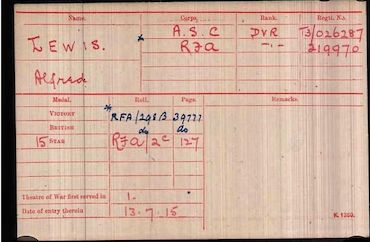 Name. Corps. Rank. Regtl. No.
LEWIS. * A.S.C DVR T3/026287
RFA -"- 219970
Alfred
Medal. Roll. Page. Remarks.
VICTORY * RFA/298B 39777
BRITISH do do
15 STAR RFA/2C 127
Theatre of War first served in 1.
Date of entry therein 13.7.15 K. 1380.